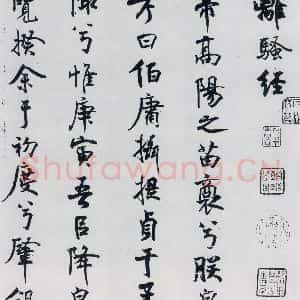 離騷經
帝高陽之苗裔兮朕皇
考曰伯庸攝提貞于孟
陬兮惟庚寅吾以降皇
覽揆余于初度兮肇錫
Shufawang.CN